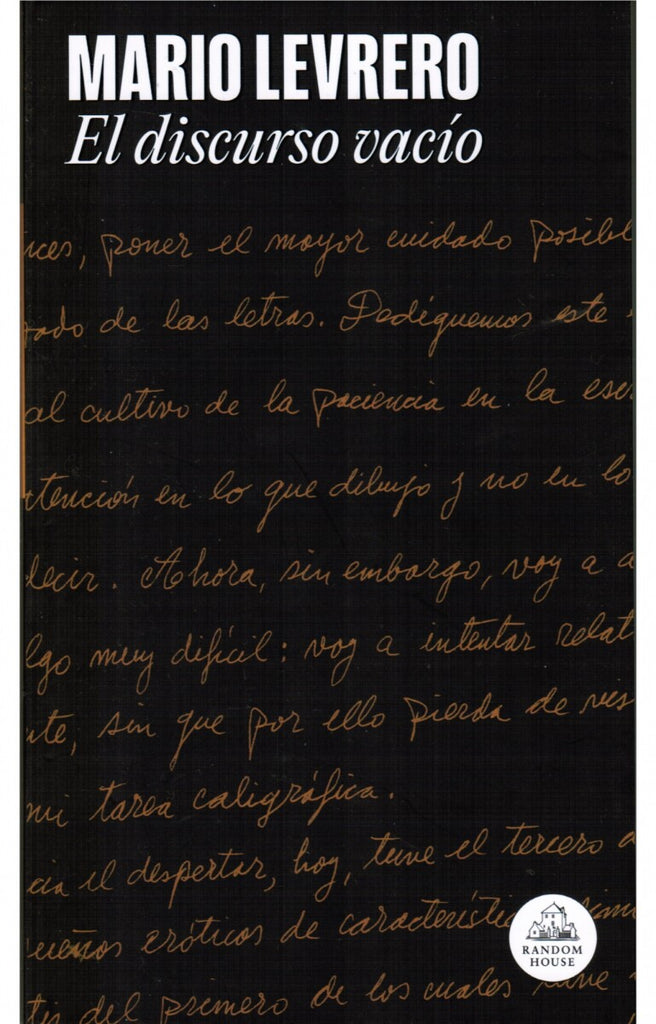 MARIO LEVRERO
El discurso vacío
ces, poner el mayor cuidado posibl
ado de las letras. Dediquemos este
al cultivo de la paciencia en la escr
tención en lo que dibujo y no en lo
decir. Ahora, sin embargo, voy a a
lgo muy difícil: voy a intentar relat
nte, sin que por ello pierda de vis
mi tarea caligráfica.
cia el despertar, hoy, tuve el tercero d
ueños eróticos de característic
tes del primero de los cuales tuve
RANDOM
HOUSE